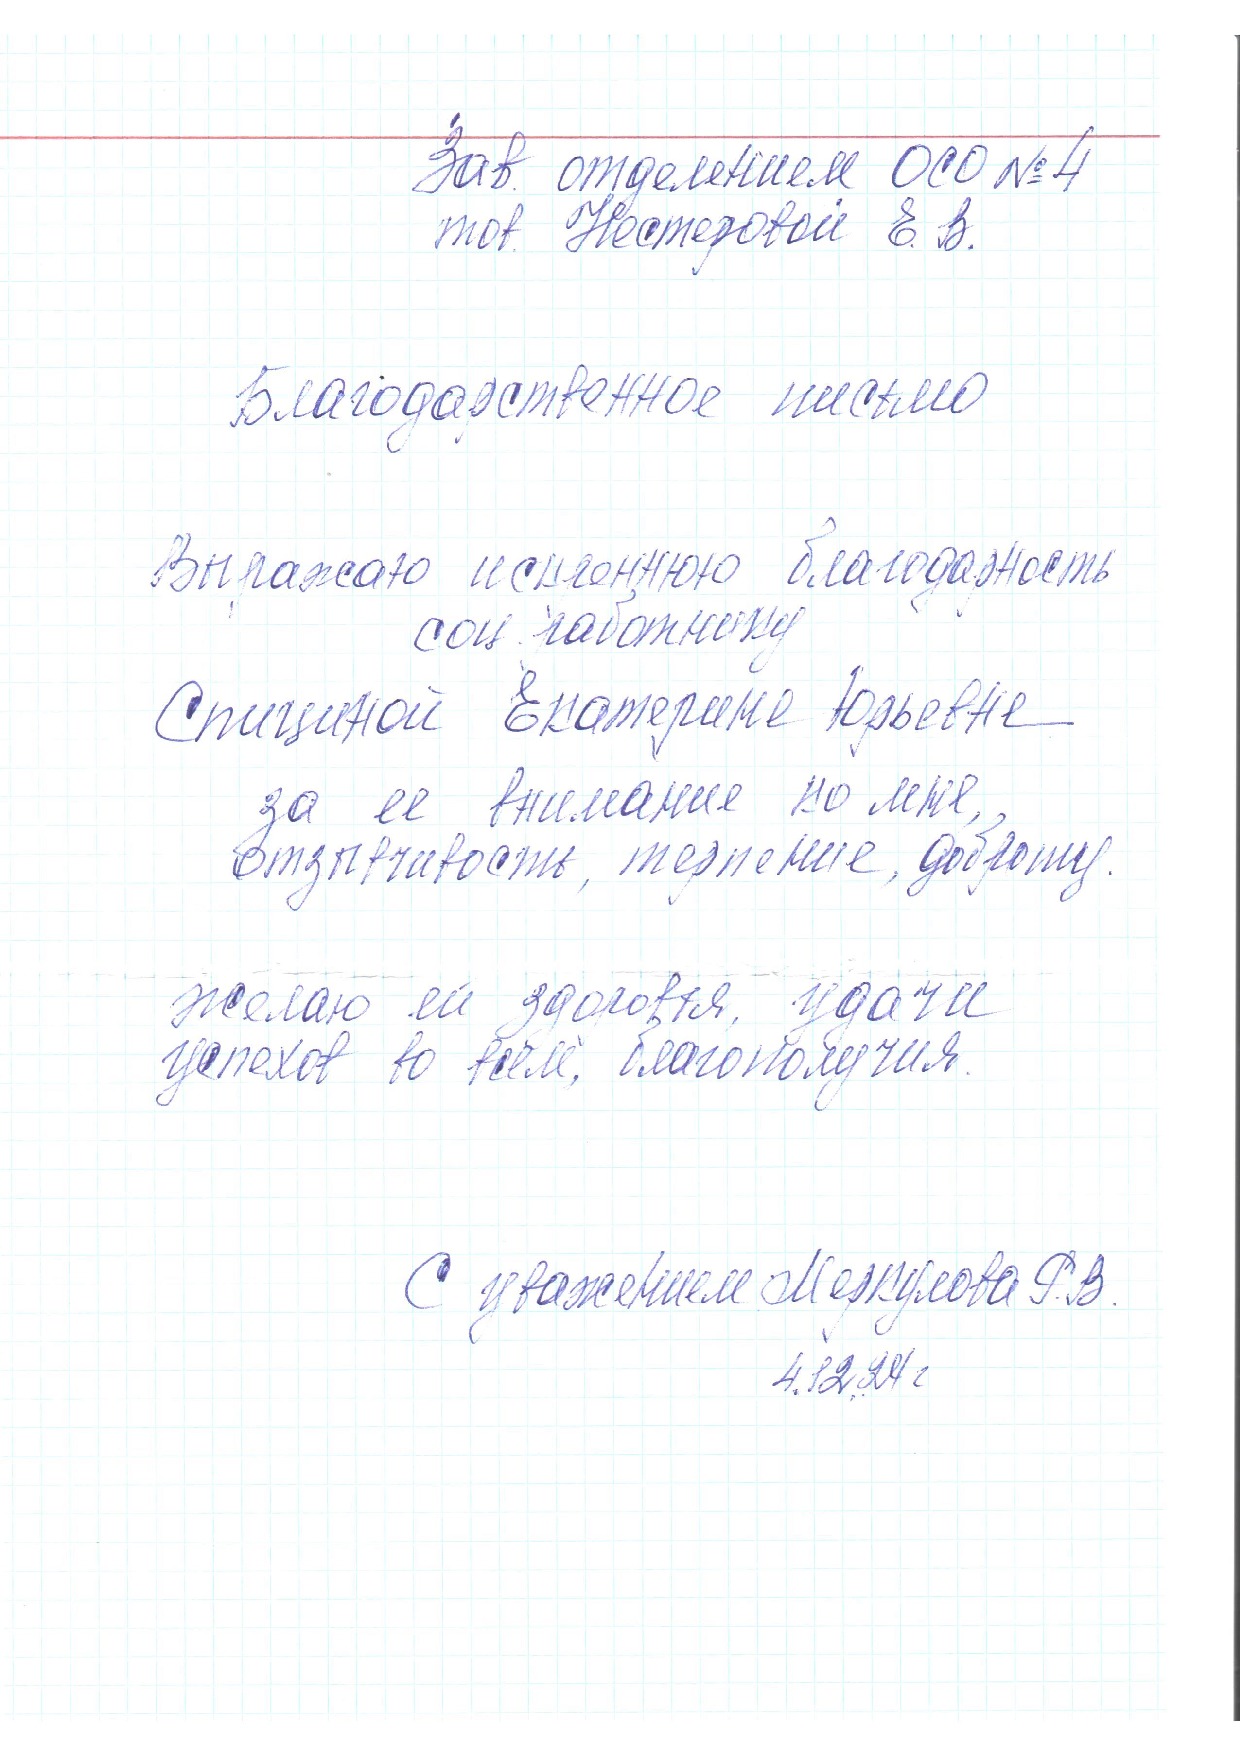 Зав. отделением ОСО №4
тов. Нестеровой Е. В.
Благодарственное письмо
Выражаю искреннюю благодарность
соц. работнику
Спициной Екатерине Юрьевне
за ее внимание ко мне,
отзывчивость, терпение, доброту.
желаю ей здоровья, удачи
успехов во всём, благополучия.
С уважением Меркулова Г.В.
4.12.24 г